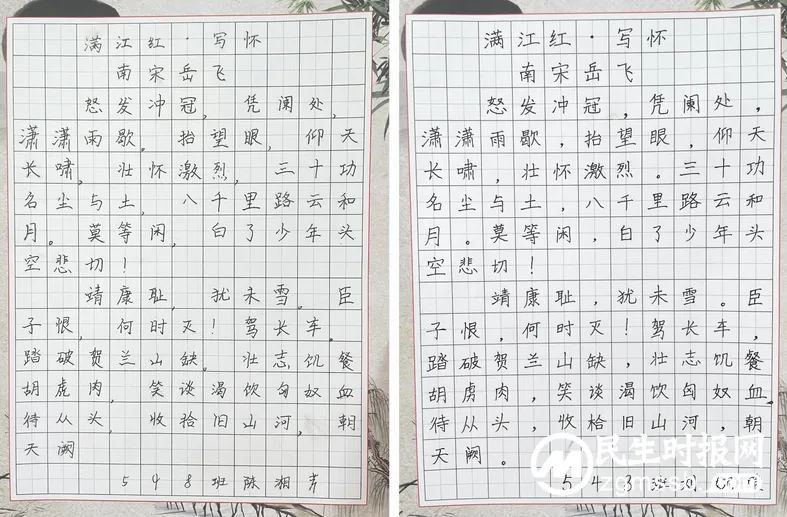 满江红·写怀
南宋岳飞
怒发冲冠，凭阑处，
潇潇雨歇。抬望眼，仰天
长啸，壮怀激烈，三十功
名尘与土，八千里路云和
月。莫等闲，白了少年头
空悲切！
靖康耻，犹未雪。臣
子恨，何时灭！驾长车。
踏破贺兰山缺。壮志饥餐
胡虏肉，笑谈渴饮匈奴血
待从头，收拾旧山河，朝
天阙
548班陈湘
满江红·写怀
南宋岳飞
怒发冲冠，凭阑处，
潇潇雨歇，抬望眼，仰天
长啸，壮怀激烈。三十功
名尘与土，八千里路云和
月。莫等闲，白了少年头
空悲切！
靖康耻，犹未雪。臣
子恨，何时灭！驾长车，
踏破贺兰山缺，壮志饥餐
胡虏肉，笑谈渴饮匈奴血。
待从头，收拾旧山河，朝
天阙。
543班刘
民生时报网